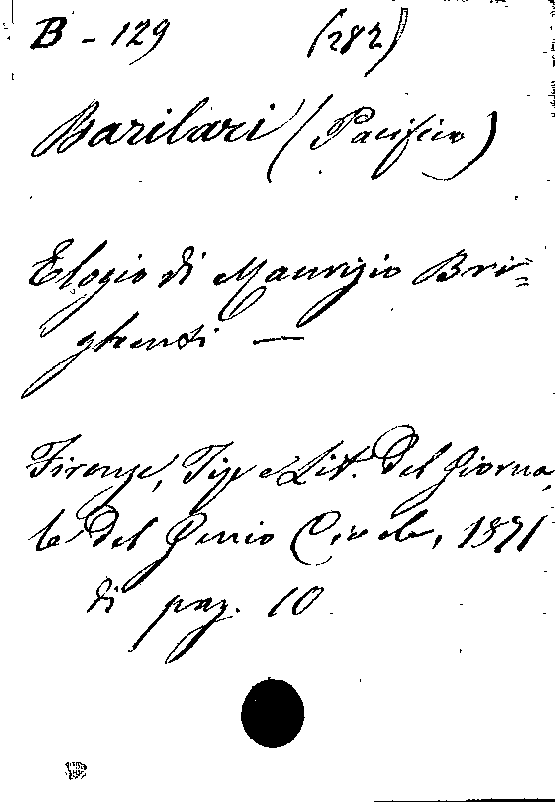 B - 129 (282)
Barilari (Pacifico)
Elogio di Maurizio Bri=
ghenti —
Firenze, Tip e Lit. del Giorna,
le del Genio Civile, 1871
di pag. 10